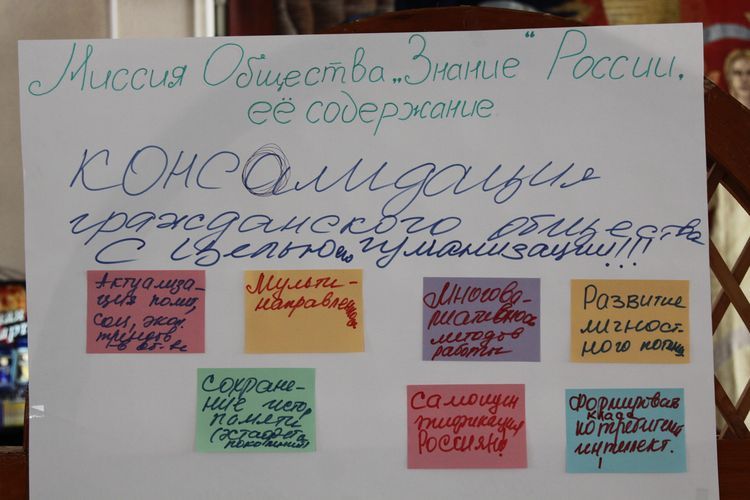 Миссия Общества „Знание“ России,
её содержание
КОНСОЛИДАЦИЯ
гражданского общества
с целью его гуманизации!!!
Актуализа-
ция полит,
соц, экол.
трендов
в об-ве
Мульти-
направлен
Многова-
риативность
методов
работы
Развитие
личност-
ного потенц
Сохране-
ние истор
памяти
(эстафета
поколений)
Самоиден
тификация
Россиян!
Формировать
класс
потребителя
интеллект.
!